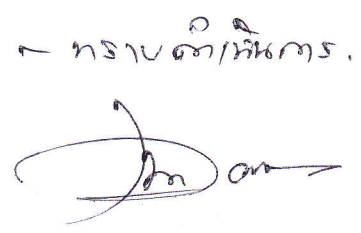 - ทราบดำเนินการ.